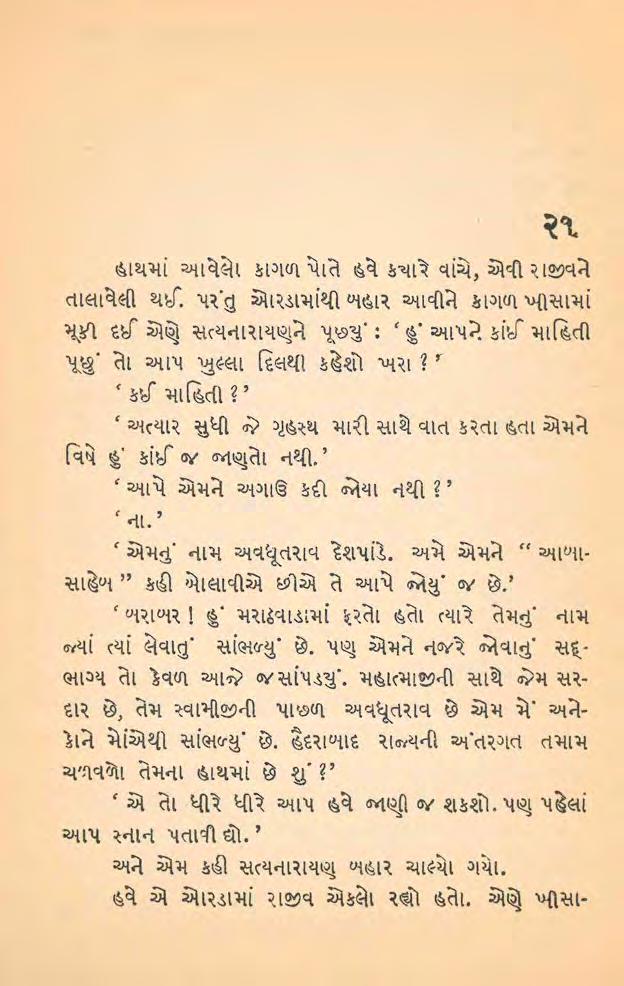 ૨૧
હાથમાં આવેલો કાગળ પોતે હવે ક્યારે વાંચે, એવી રાજીવને
તાલાવેલી થઈ. પરંતુ ઓરડામાંથી બહાર આવીને કાગળ ખીસામાં
મૂકી દઈ એણે સત્યનારાયણને પૂછ્યું : ‘ હું આપને કાંઈ માહિતી
પૂછું તો આપ ખુલ્લા દિલથી કહેશો ખરા ? ’
‘ કઈ માહિતી ? ’
‘ અત્યાર સુધી જે ગૃહસ્થ મારી સાથે વાત કરતા હતા એમને
વિષે હું કાંઈ જ જાણતો નથી. ’
‘ આપે એમને અગાઉ કદી જોયા નથી ? ’
‘ ના. ’
‘ એમનું નામ અવધૂતરાવ દેશપાંડે. અમે એમને “ આબા-
સાહેબ ” કહી બોલાવીએ છીએ તે આપે જોયું જ છે. ’
‘ બરાબર ! હું મરાઠવાડામાં ફરતો હતો ત્યારે તેમનું નામ
જ્યાં ત્યાં લેવાતું સાંભળ્યું છે. પણ એમને નજરે જોવાનું સદ્-
ભાગ્ય તો કેવળ આજે જ સાંપડ્યું. મહાત્માજીની સાથે જેમ સર-
દાર છે, તેમ સ્વામીજીની પાછળ અવધૂતરાવ છે એમ મેં અને-
કોને મોંએથી સાંભળ્યું છે. હૈદરાબાદ રાજ્યની અંતરગત તમામ
ચળવળો તેમના હાથમાં છે શું ? ’
‘ એ તો ધીરે ધીરે આપ હવે જાણી જ શકશો. પણ પહેલાં
આપ સ્નાન પતાવી દ્યો. ’
અને એમ કહી સત્યનારાયણ બહાર ચાલ્યો ગયો.
હવે એ ઓરડામાં રાજીવ એકલો રહ્યો હતો. એણે ખીસા-